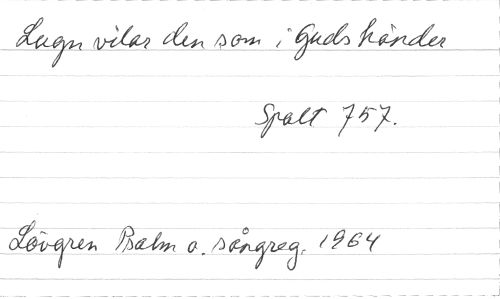 Lugn vilar den som i Guds händer
Spalt 757.
Lövgren Psalm o. sångreg. 1964